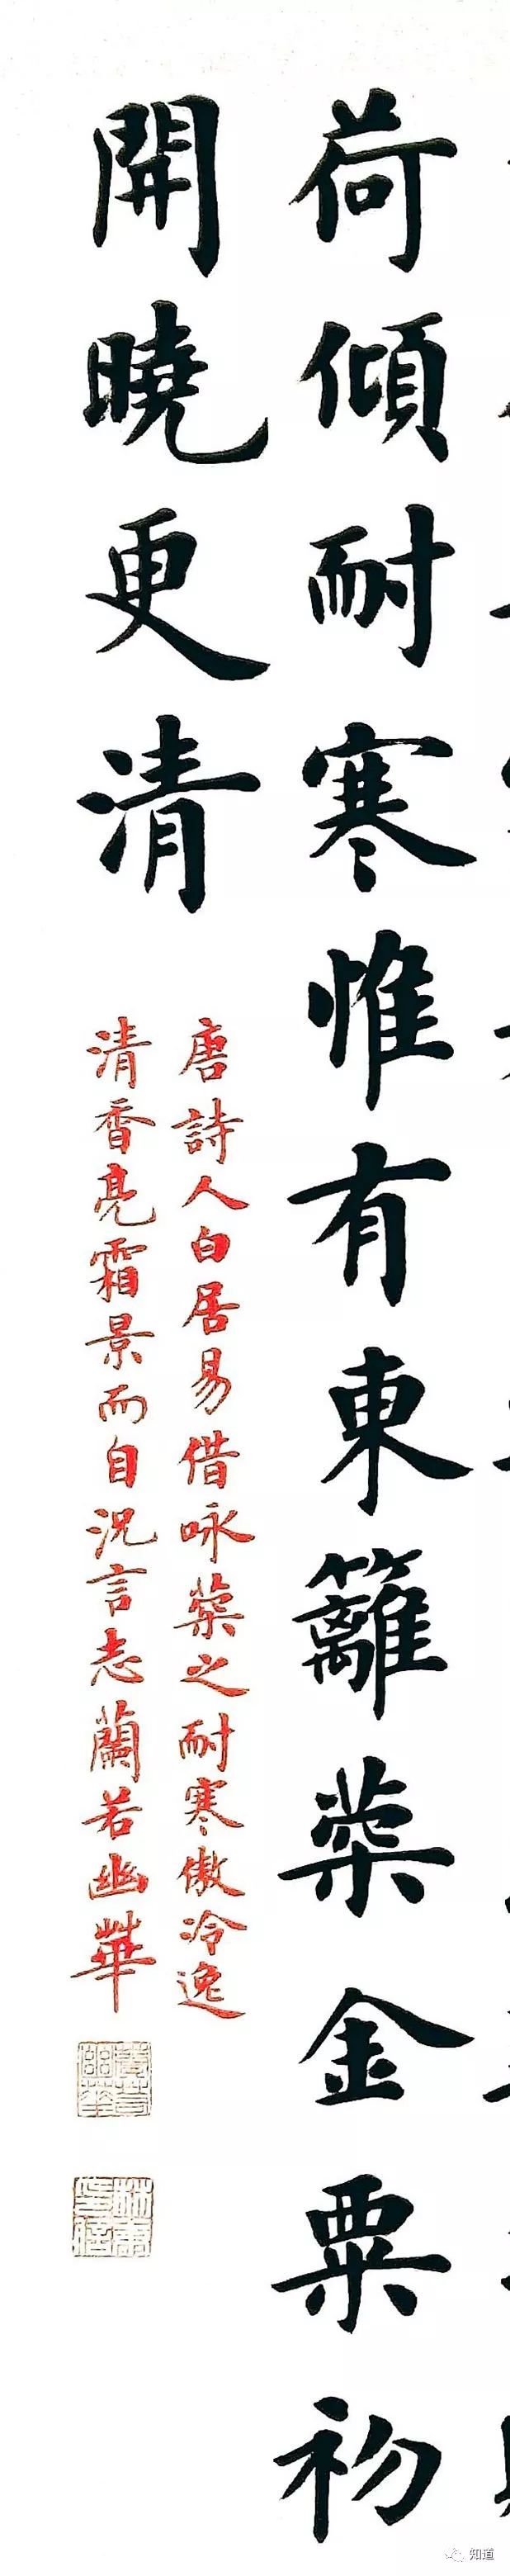 荷傾耐寒惟有東籬菊金粟初
開曉更清
唐詩人白居易借咏菊之耐寒傲冷逸
清香亮霜景而自況言志蘭若幽華
知道